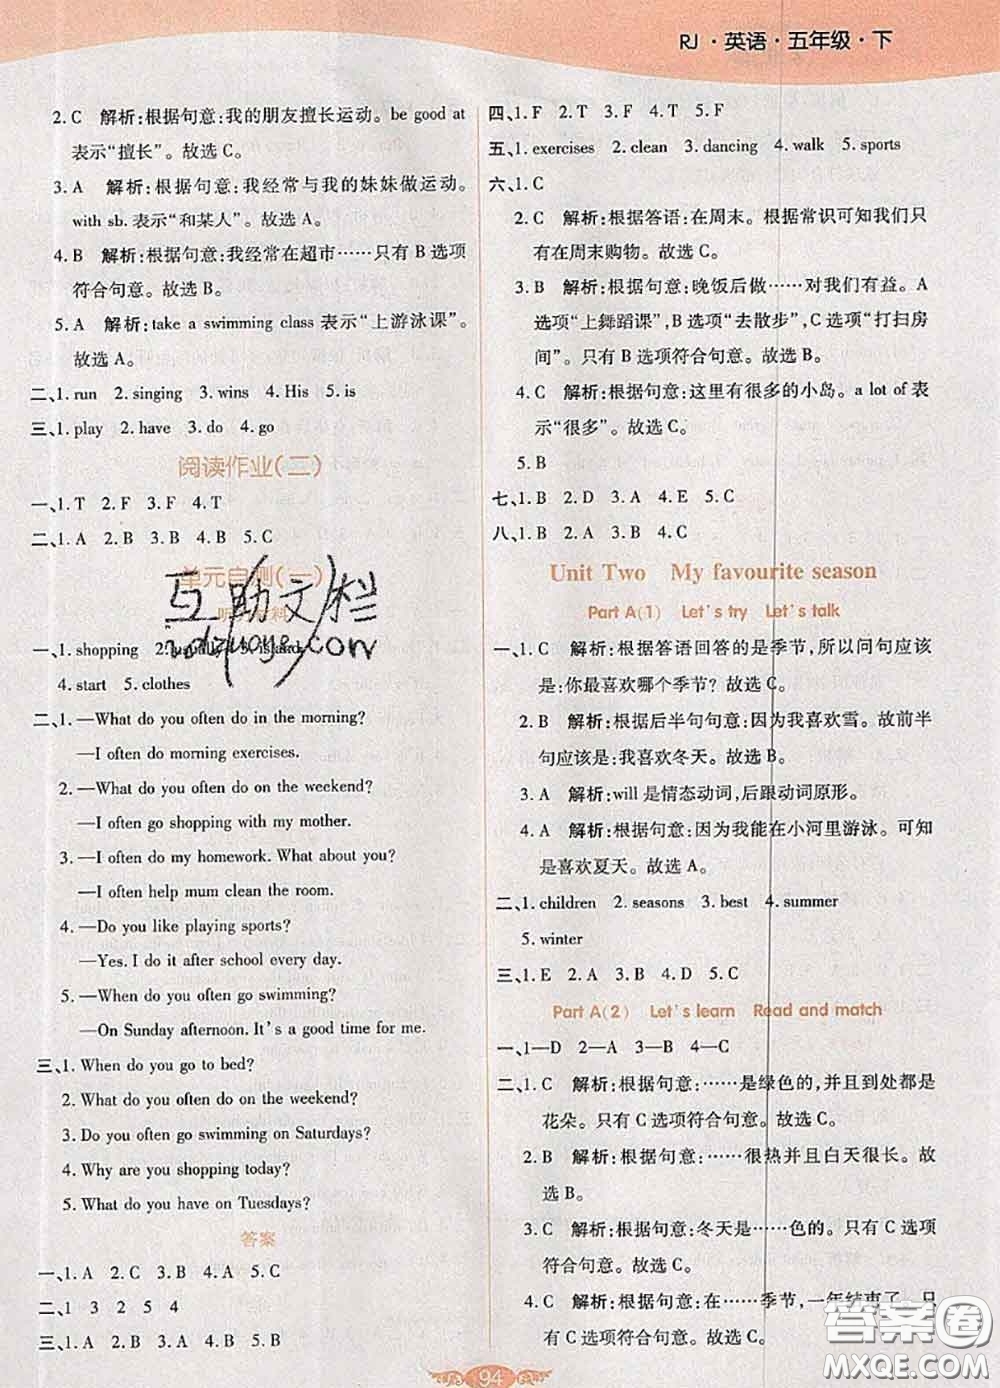 RJ · 英语 · 五年级 · 下
2. C 解析:根据句意:我的朋友擅长运动。be good at
表示“擅长”。故选 C。
3. A 解析:根据句意:我经常与我的妹妹做运动。
with sb. 表示“和某人”。故选 A。
4. B 解析:根据句意:我经常在超市……只有 B 选项
符合句意。故选 B。
5. A 解析:take a swimming class 表示“上游泳课”。
故选 A。
二、1. run 2. singing 3. wins 4. His 5. is
三、1. play 2. have 3. do 4. go
阅读作业(二)
一、1. T 2. F 3. F 4. T
二、1. A 2. B 3. B 4. B 5. C
单元自测(一)
一、1. shopping 2. usually 3. island
4. start 5. clothes
二、1. —What do you often do in the morning?
—I often do morning exercises.
2. —What do you often do on the weekend?
—I often go shopping with my mother.
3. —I often do my homework. What about you?
—I often help mum clean the room.
4. —Do you like playing sports?
—Yes. I do it after school every day.
5. —When do you go swimming?
—On Sunday afternoon. It's a good time for me.
三、1. When do you go to bed?
2. What do you often do on the weekend?
3. Do you often go swimming on Saturdays?
4. Why are you shopping today?
5. What do you have on Tuesdays?
答案
一、1. A 2. C 3. B 4. A 5. C
二、1 3 2 5 4
三、1. B 2. A 3. A 4. B 5. B
四、1. F 2. T 3. T 4. F 5. F
五、1. exercises 2. clean 3. dancing 4. walk 5. sports
六、1. C
2. C 解析:根据答语:在周末。根据常识可知我们只
有在周末购物。故选 C。
3. B 解析:根据句意:晚饭后做……对我们有益。A
选项“上舞蹈课”,B 选项“去散步”,C 选项“打扫房
间”。只有 B 选项符合句意。故选 B。
4. C 解析:根据句意:这里有很多的小岛。a lot of 表
示“很多”。故选 C。
5. B
七、1. B 2. D 3. A 4. E 5. C
八、1. B 2. A 3. B 4. C
Unit Two My favourite season
Part A(1) Let's try Let's talk
一、1. C 解析:根据答语回答的是季节,所以问句应该
是:你最喜欢哪个季节? 故选 C。
2. B 解析:根据后半句句意:因为我喜欢雪。故前半
句应该是:我喜欢冬天。故选 B。
3. A 解析:will 是情态动词,后跟动词原形。
4. A 解析:根据句意:因为我能在小河里游泳。可知
是喜欢夏天。故选 A。
二、1. children 2. seasons 3. best 4. summer
5. winter
三、1. E 2. A 3. B 4. D 5. C
Part A(2) Let's learn Read and match
一、1—D 2—A 3—B 4—C
二、1. C 解析:根据句意:……是绿色的,并且到处都是
花朵。只有 C 选项符合句意。故选 C。
2. B 解析:根据句意:……很热并且白天很长。故
选 B。
3. C 解析:根据句意:冬天是……色的。只有 C 选项
符合句意。故选 C。
4. C 解析:根据句意:在……季节,一年结束了。只
有 C 选项符合句意。故选 C。
94
互助文档
答案圈
MXQE.COM